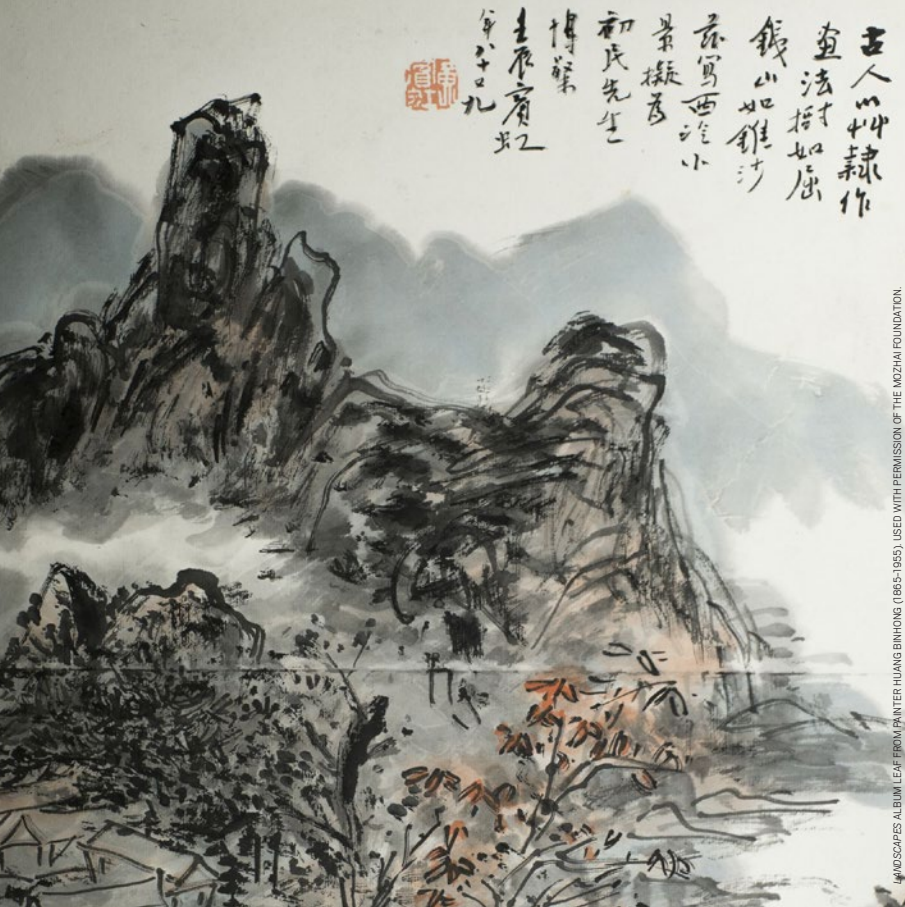 古人以艸隸作
畫法樹如屈
銕山如錐沙
茲寫西泠小
景擬為
初民先生
博粲
壬辰賓虹
年八十又九
黃賓虹
LANDSCAPES ALBUM LEAF FROM PAINTER HUANG BINHONG (1865-1955). USED WITH PERMISSION OF THE MOZHAI FOUNDATION.